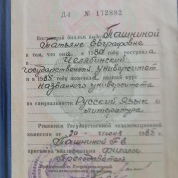 ДЧ № 172883
Настоящий диплом выдан Ткашниной
Татьяне Евграфовне
в том, что она в 1980 году поступила
в Челябинский
государственный университет
и в 1985 году окончила полный курс
названного университета
по специальности Русский язык и
литература
Решением Государственной экзаменационной
комиссии от 20 июня 1985 г.
Т.Е.
присвоена квалификация филолог
преподаватель